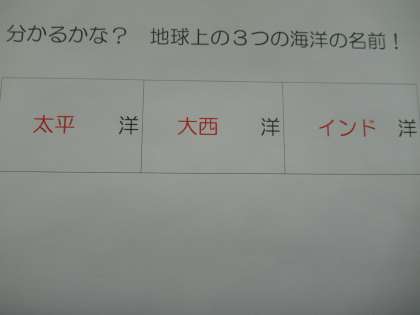 分かるかな？　地球上の３つの海洋の名前！
太平　洋　大西　洋　インド　洋